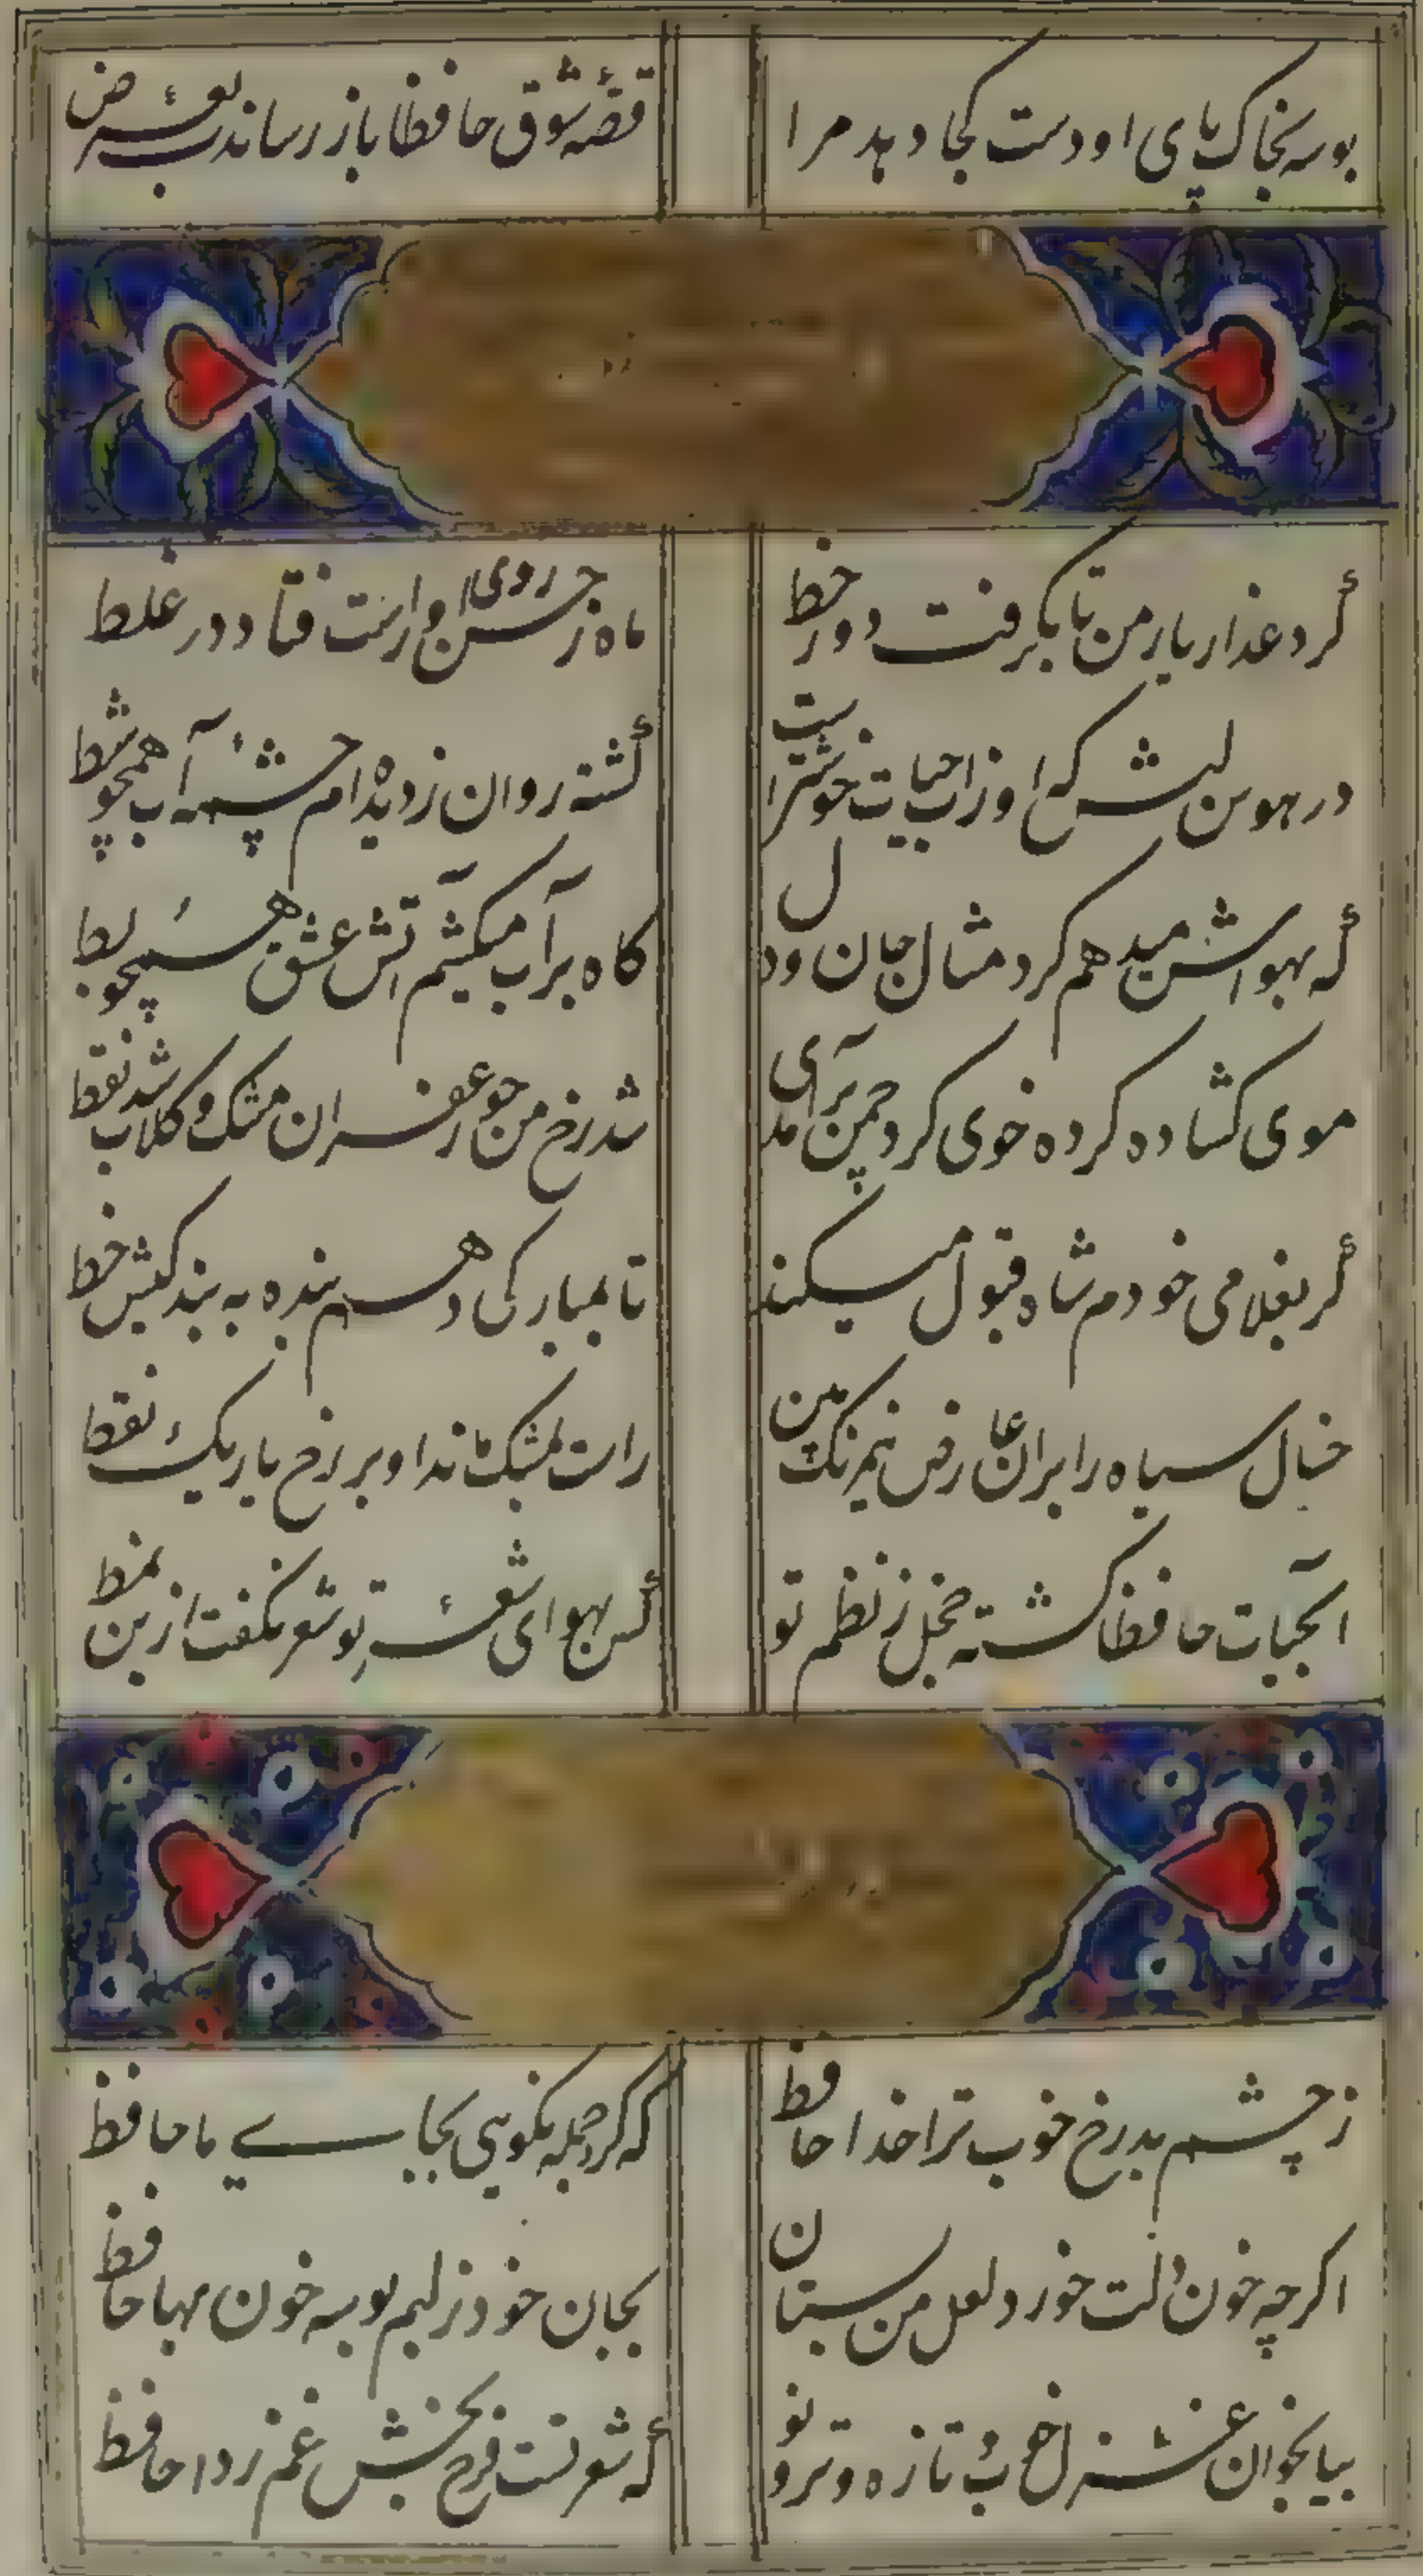 بوسه بخاک پای او دست کجا دهد مرا قصهٔ شوق حافظا باز رساندت بعرض
گرد عذار یار من تا بگرفت دور خط ماه ز حسن روی او راست فتاد در غلط
در هوس لبش که او ز آب حیات خوشترست گشته روان ز دیده‌ام چشمهٔ آب همچو شط
گه بهواش میدهم گرد مثال جان و دل گاه برآب میکشم آتش عشق همچو بط
موی کشاده کرده خوی گرد چمن برآمدی شد رخ من چو زعفران مشک و گلاب شد نقط
گر بغلامی خودم شاه قبول میکند تا بمبارکی دهم بنده به بندگیش خط
خال سیاه را بران عارض نیم رنگ بین راست بمشک ماند او بر رخ یار یک نقط
آبحیات حافظا گشته خجل ز نظم تو کس بهوای شعر تو شعر نگفت ازین نمط
ز چشم بد رخ خوب ترا خدا حافظ که کرد جمله نکویی بجای ما حافظ
اگرچه خون دلت خورد لعل من بستان بجان خود ز لبم بوسه خون بها حافظ
بیا بخوان غزل خوب و تازه و تر و نو که شعر تست فرح بخش غم زدا حافظ